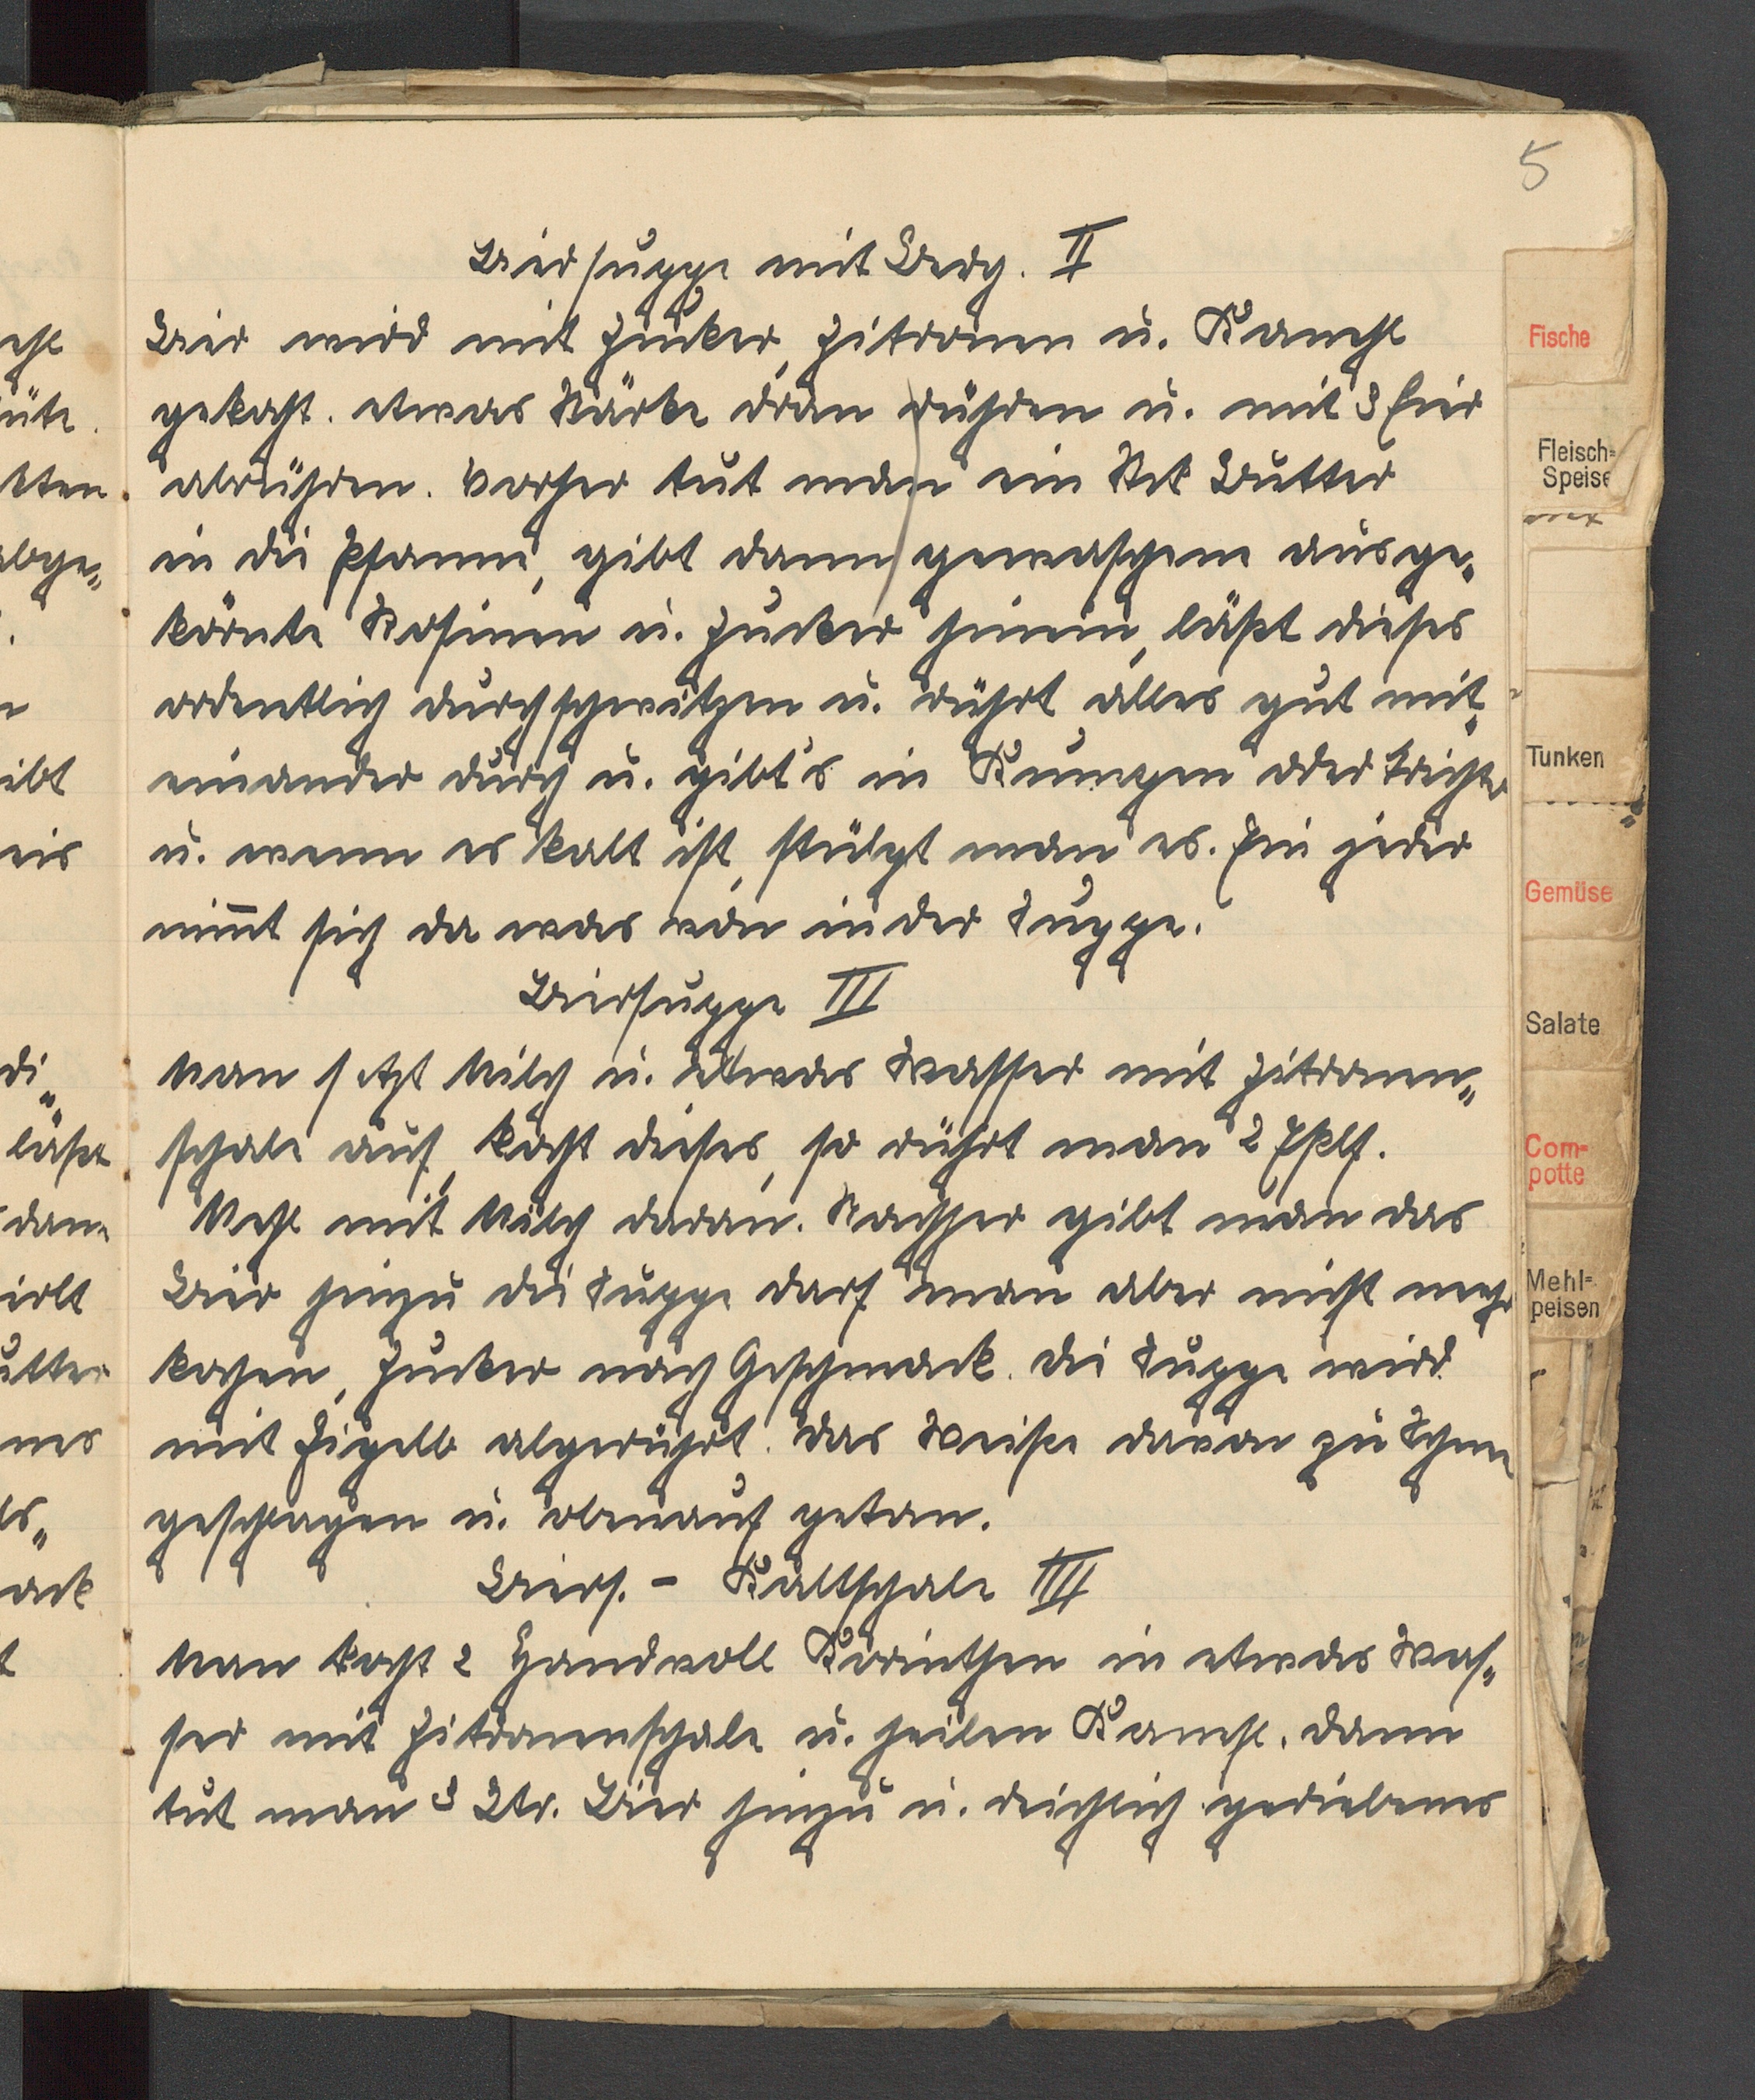 5
Biersuppe mit Berg. II
Bier wird mit Zucker, Zitronen u. Kanehl
gekocht. etwas Stärke dran rühren u. mit 3 Eier
abrühren. Vorher tut man ein Stck Butter
in die Pfanne, gibt dann gewaschene ausge„
körnte Rosinen u. Zucker hinein, läßt dieses
ordentlich durchschwitzen u. rührt alles gut mit„
einander durch u. gibt's in Kumpen oder Trichter
u. wenn es kalt ist, stülpt man es. Ein jeder
nimmt sich da was von in der Suppe.
Biersuppe III
Man setzt Milch u. etwas Wasser mit Zitronen„
schale auf, kocht dieses, so rührt man 2 Eßlf.
Mehl mit Milch daran. Nachher gibt man das
Bier hinzu die Suppe darf man aber nicht mehr
kochen, Zucker nach Geschmack. Die Suppe wird
mit Eigelb abgerührt. Das Weiße davon zu Schnee
geschlagen u. obenauf getan.
Biers. - Kaltschale IIII
Man kocht 2 Handvoll Korinthen in etwas Was„
ser mit Zitronenschale u. heilen Kanehl. Dann
tut man 3 Ltr. Bier hinzu u. reichlich geriebenes
Fische
Fleisch=
Speise
Tunken
Gemüse
Salate
Com-
potte
Mehl=
peisen
ehl
üte.
tten
abge„
ibt
eis
di„
läßt
dann
irlt
utter
nes
ls„
ack
t